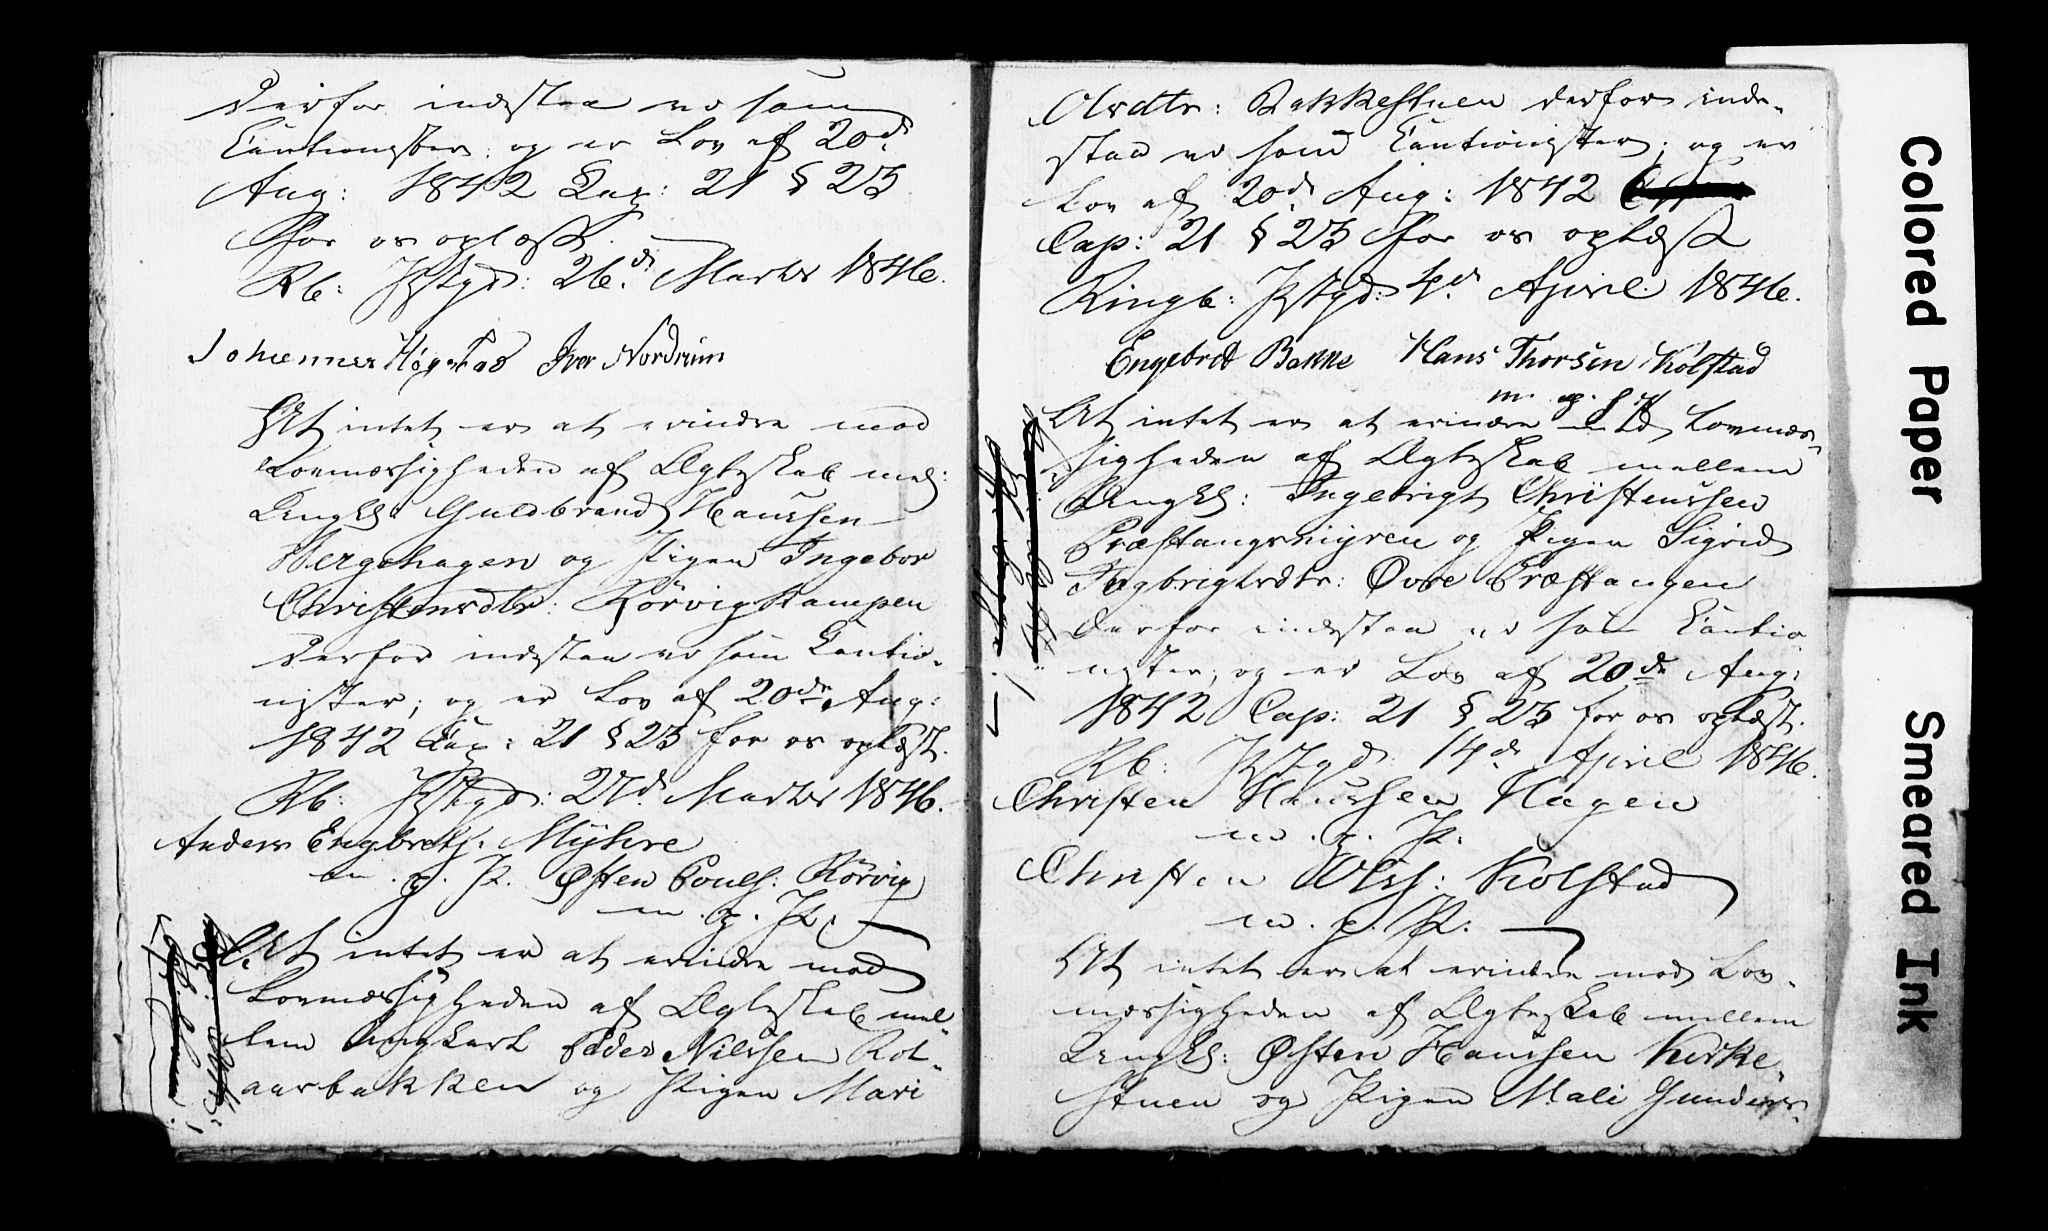 derfor indestaa vi som
Cautionister; og er Lov af 20de
Aug: 1842 Cap: 21 § 25
for os oplæst.
Rb: Pstgd: 26de Marts 1846.
Johannes Høgstad Iver Nordrum
At intet er at erindre mod
Lovmæssigheden af Ægteskab mel:
Ungkl: Guldbrand Hanssen
Bergehagen og Pigen Ingebor
Christensdtr: Rörvigkampen
derfor indestaa vi som Cautio-
nister; og er Lov af 20de Aug:
1842 Cap: 21 § 25 for os oplæst.
Rb: Pstgd: 27de Marts 1846.
Anders Engbrets: Myhre
m. p. P. Østen Pouls: Rörvig
m. p. P.
At intet er at erindre mod
Lovmæssigheden af Ægteskab mel-
lem Ungkarl Peder Nilssen Rol-
aasbakken og Pigen Mari
Olsdtr: Bakkestuen derfor inde-
staa vi som Cautionister; og er
Lov af 20de Aug: 1842
Cap: 21 § 25 for os oplæst
Ringb: Pstgd: 4de April 1846.
Engebret Bakke Hans Thorsen Kolstad
m. p. P.
At intet er at erindre mod Lovmæs-
sigheden af Ægteskab mellem
Ungkl: Ingebrigt Christenssen
Præstangsmyren og Pigen Sigrid
Ingbrigtsdtr: Øvre Præstangen
derfor indestaa vi som Cautio
nister; og er Lov af 20de Aug:
1842 Cap: 21 § 25 for os oplæst.
Rb: Pstgd: 14de April 1846.
Christen Hanssen Hagen
m. p. P.
Christen Olss: Kolstad
m. p. P.
At intet er at erindre mod Lov-
mæssigheden af Ægteskab mellem
Ungkl: Østen Hanssen Kirke-
stuen og Pigen Mali Gunders-
Colored Paper
Smeared Ink